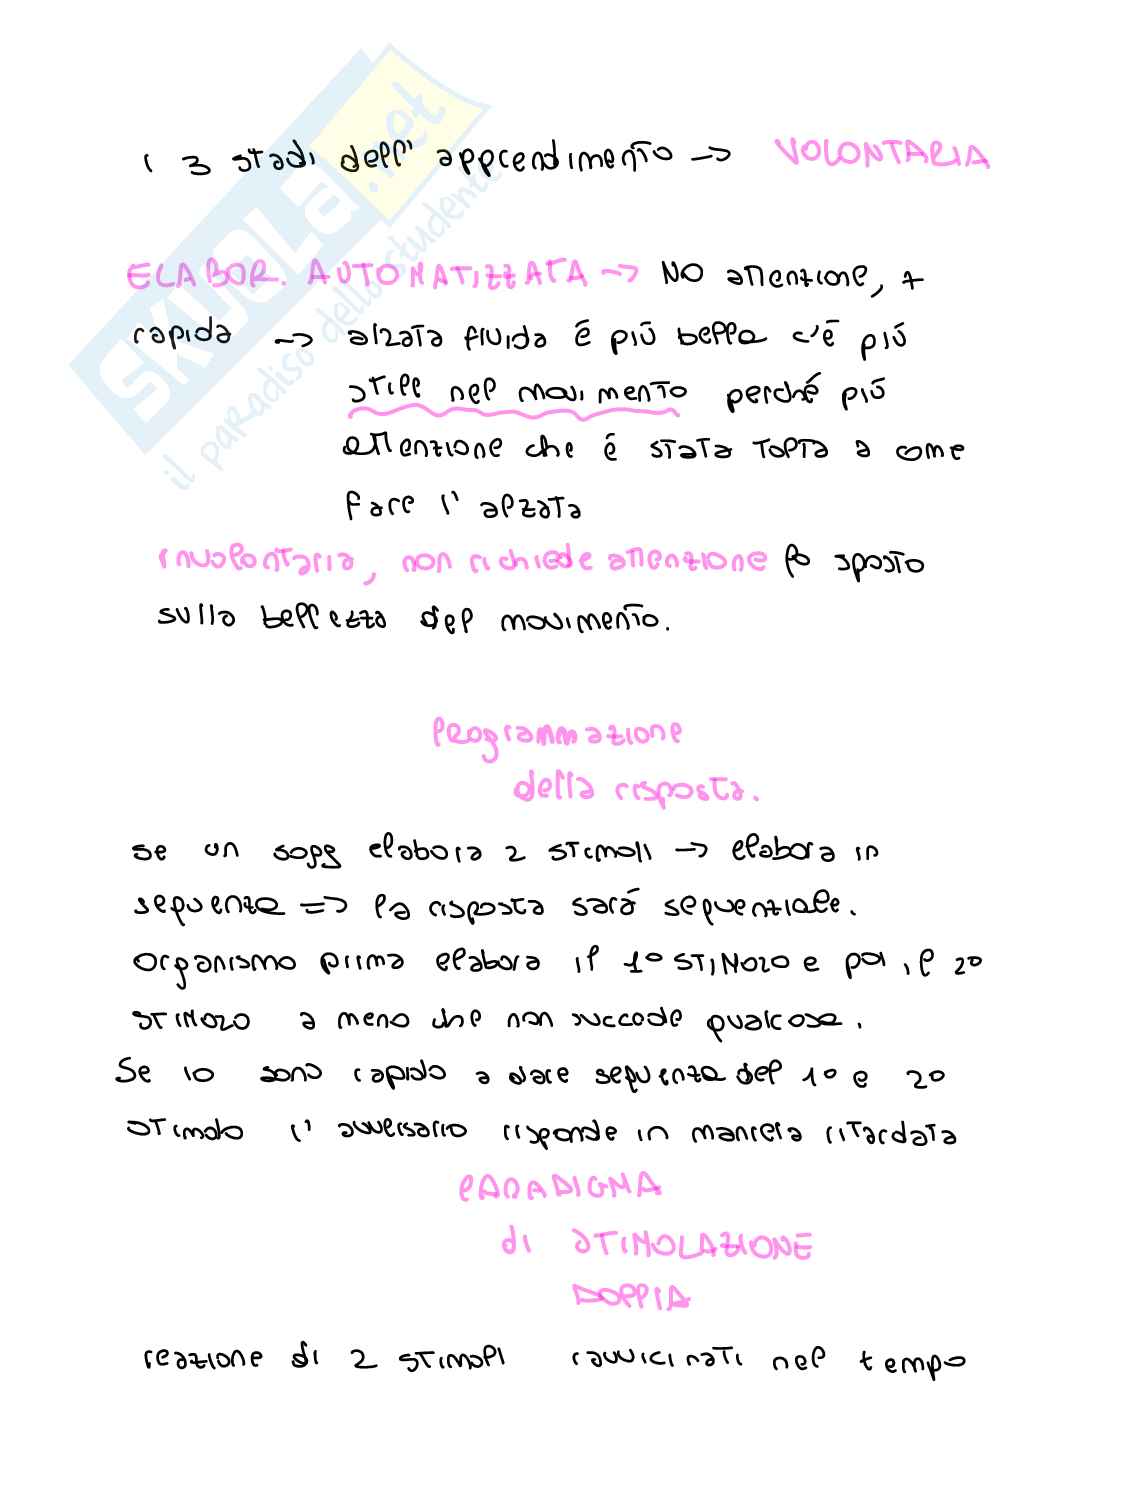 i 3 stadi dell' apprendimento -> VOLONTARIA
ELABOR. AUTOMATIZZATA -> NO attenzione, +
rapida -> alzata fluida è più bella c'è più
stile nel movimento perché più
attenzione che è stata tolta a come
fare l' alzata
involontaria, non richiede attenzione lo sposto
sulla bellezza del movimento.
Programmazione
della risposta.
se un sogg elabora 2 stimoli -> elabora in
sequenza => la risposta sarà sequenziale.
Organismo prima elabora il 1° STIMOLO e poi il 2°
STIMOLO a meno che non succede qualcosa.
Se io sono rapido a dare sequenza del 1° e 2°
stimolo l' avversario risponde in maniera ritardata
PARADIGMA
di STIMOLAZIONE
DOPPIA
reazione di 2 stimoli ravvicinati nel tempo
SKUOLA.net
il paradiso dello studente